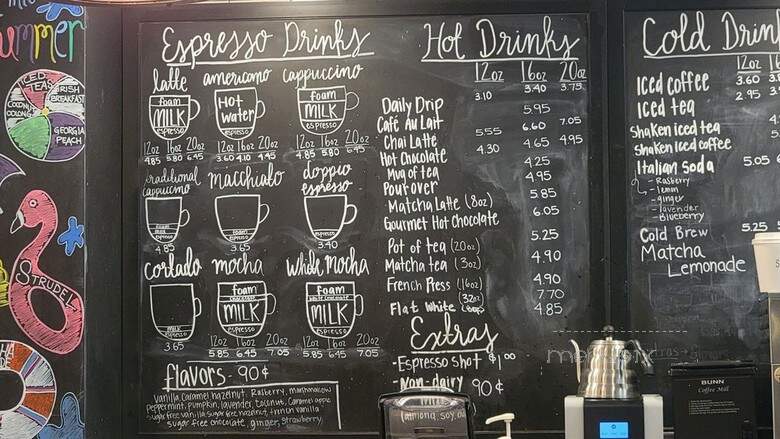 ummer
ICED
TEAS
IRISH
BREAKFAST
COCONUT
COLONG
GEORGIA
PEACH
STRUDEL
Espresso Drinks
latte americano cappuccino
foam
MILK
espresso
Hot
water
foam
MILK
espresso
12oz 16oz 20oz
4.85 5.80 6.45
12oz 16oz 20oz
3.60 4.10 4.45
12oz 16oz 20oz
4.85 5.80 6.45
traditional
cappuccino
macchiato
doppio
espresso
foam
milk
espresso
4.85
espresso
3.65
espresso
3.40
cortado mocha white mocha
milk
espresso
3.65
foam
chocolate
MILK
espresso
foam
white chocolate
MILK
espresso
12oz 16oz 20oz
5.85 6.45 7.05
12oz 16oz 20oz
5.85 6.45 7.05
flavors - 90¢
vanilla, caramel, hazelnut, Rasberry, marshmallow
peppermint, pumpkin, lavender, coconut, caramel apple
sugar free vanilla, sugar free hazelnut, french vanilla
sugar free chocolate, ginger, strawberry
Hot Drinks
12oz 16oz 20oz
Daily Drip 3.10 3.40 3.75
Café Au Lait 5.95
Chai Latte 5.55 6.60 7.05
Hot Chocolate 4.30 4.65 4.95
Mug of tea 4.25
Pour over 4.95
Matcha Latte (8oz) 5.85
Gourmet Hot Chocolate 6.05
Pot of tea (20oz) 5.25
Matcha tea (3oz) 4.90
French Press (16oz) 4.90
(32oz) 7.70
Flat White 4.85
Extras
- Espresso shot $1.00
- Non-dairy 90¢
(almond, soy,
Cold Drin
12oz
Iced coffee 3.60
Iced tea 2.95
shaken iced tea
shaken iced coffee
Italian soda 5.05
- Rasberry
- lemon
- ginger
- lavender
- Blueberry
Cold Brew 5.25
Matcha
Lemonade
BUNN
Coffee Mill